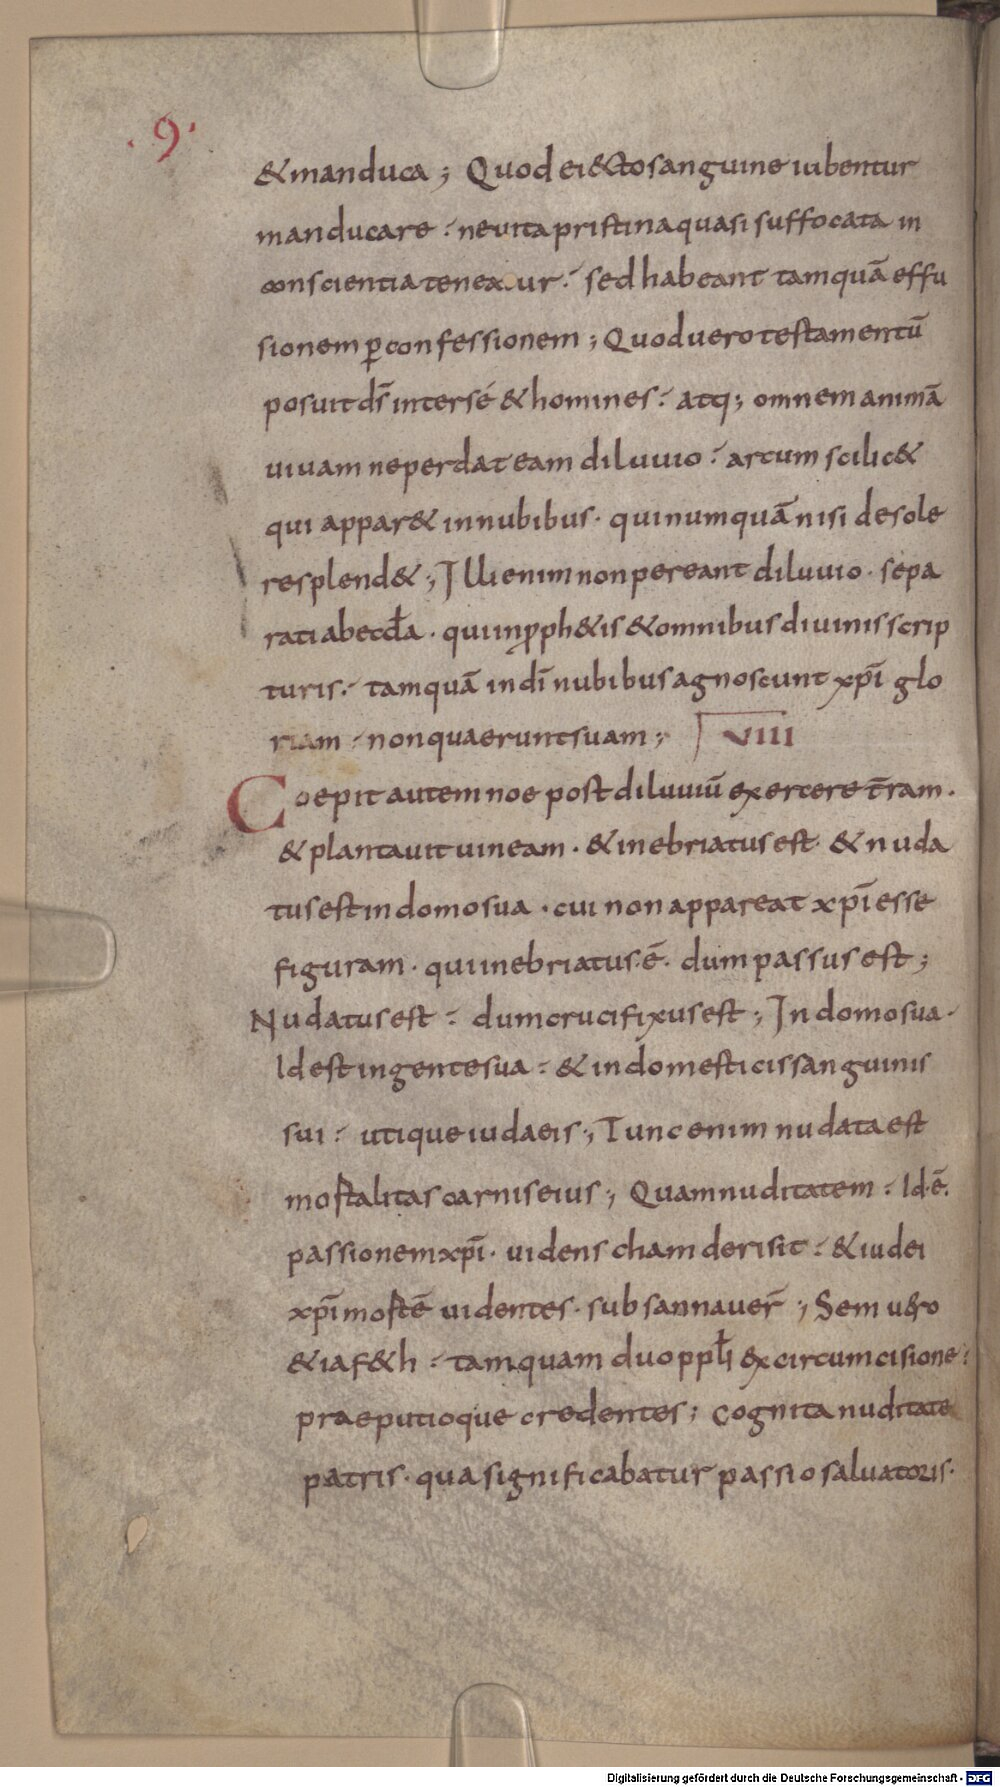 ·9·
& manduca; Quod ei&to sanguine iubentur
manducare· ne uita pristina quasi suffocata in
conscientia teneatur· sed habeant tamquā effu
sionem ꝑ confessionem; Quod uero testamentū
posuit ds̄ inter sé & homines· atq; omnem animā
uiuam ne perdat eam diluuio· arcum scilic&
qui appar& in nubibus· qui numquā nisi de sole
resplend&; Illi enim non pereant diluuio· sepa
rati ab eccła· qui in ꝓph&is & omnibus diuinis scrip
turis· tamquā in dī nubibus agnoscunt xp̄i glo
riam· non quaerunt suam; VIII
Coepit autem noe post diluuiū exercere t̄ram·
& plantauit uineam· & inebriatus est· & nuda
tus est in domo sua· cui non appareat xp̄i esse
figuram· qui inebriatus·ē· dum passus est;
Nudatus est· dum crucifixus est; In domo sua·
Id est in gente sua· & in domesticis sanguinis
sui· utique iudaeis; Tunc enim nudata est
mortalitas carnis eius; Quam nuditatem· Id·ē·
passionem xp̄i· uidens cham derisit· & iudei
xp̄i mortē uidentes· subsannauer̄; Sem u&ro
& iaf&h· tamquam duo pꝓłi ex circumcisione·
praeputioque credentes; cognita nuditate
patris· qua significabatur passio saluatoris·
Digitalisierung gefördert durch die Deutsche Forschungsgemeinschaft - DFG